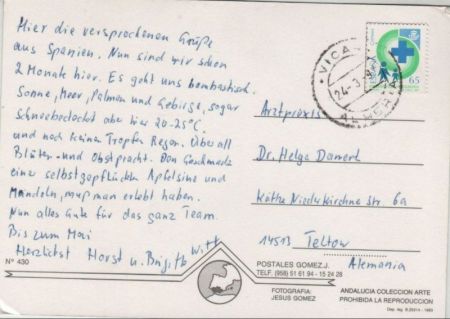 Hier die versprochenen Grüße
aus Spanien. Nun sind wir schon
2 Monate hier. Es geht uns bombastisch.
Sonne, Meer, Palmen und Gebirge, sogar
Schneebedeckt aber hier 20-25°C.
und noch keinen Tropfen Regen. Überall
Blüten- und Obstpracht. Den Geschmack
einer selbstgepflückten Apfelsine und
Mandeln, muß man erlebt haben.
Nun alles Gute für das ganz Team.
Bis zum Mai
Herzlichst Horst u. Brigitte Witt
Nº 430
65
Arztpraxis
Dr. Helga Damerl
Käthe Niederkirchner Str. 6a
14513 Teltow
Alemania
POSTALES GOMEZ.J.
TELF. (958) 51 61 94 - 15 24 28
FOTOGRAFIA:
JESUS GOMEZ
ANDALUCIA COLECCION ARTE
PROHIBIDA LA REPRODUCCION